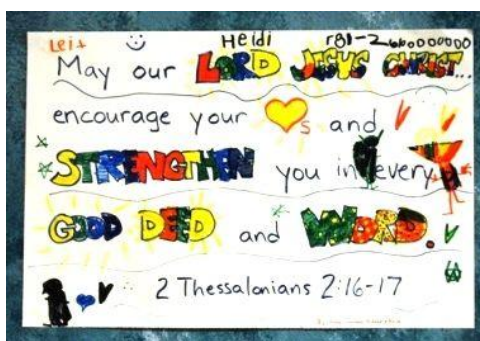 Heidi
May our LORD JESUS CHRIST...
encourage your s and
STRENGTHEN you in every
GOOD DEED and WORD.
2 Thessalonians 2:16-17